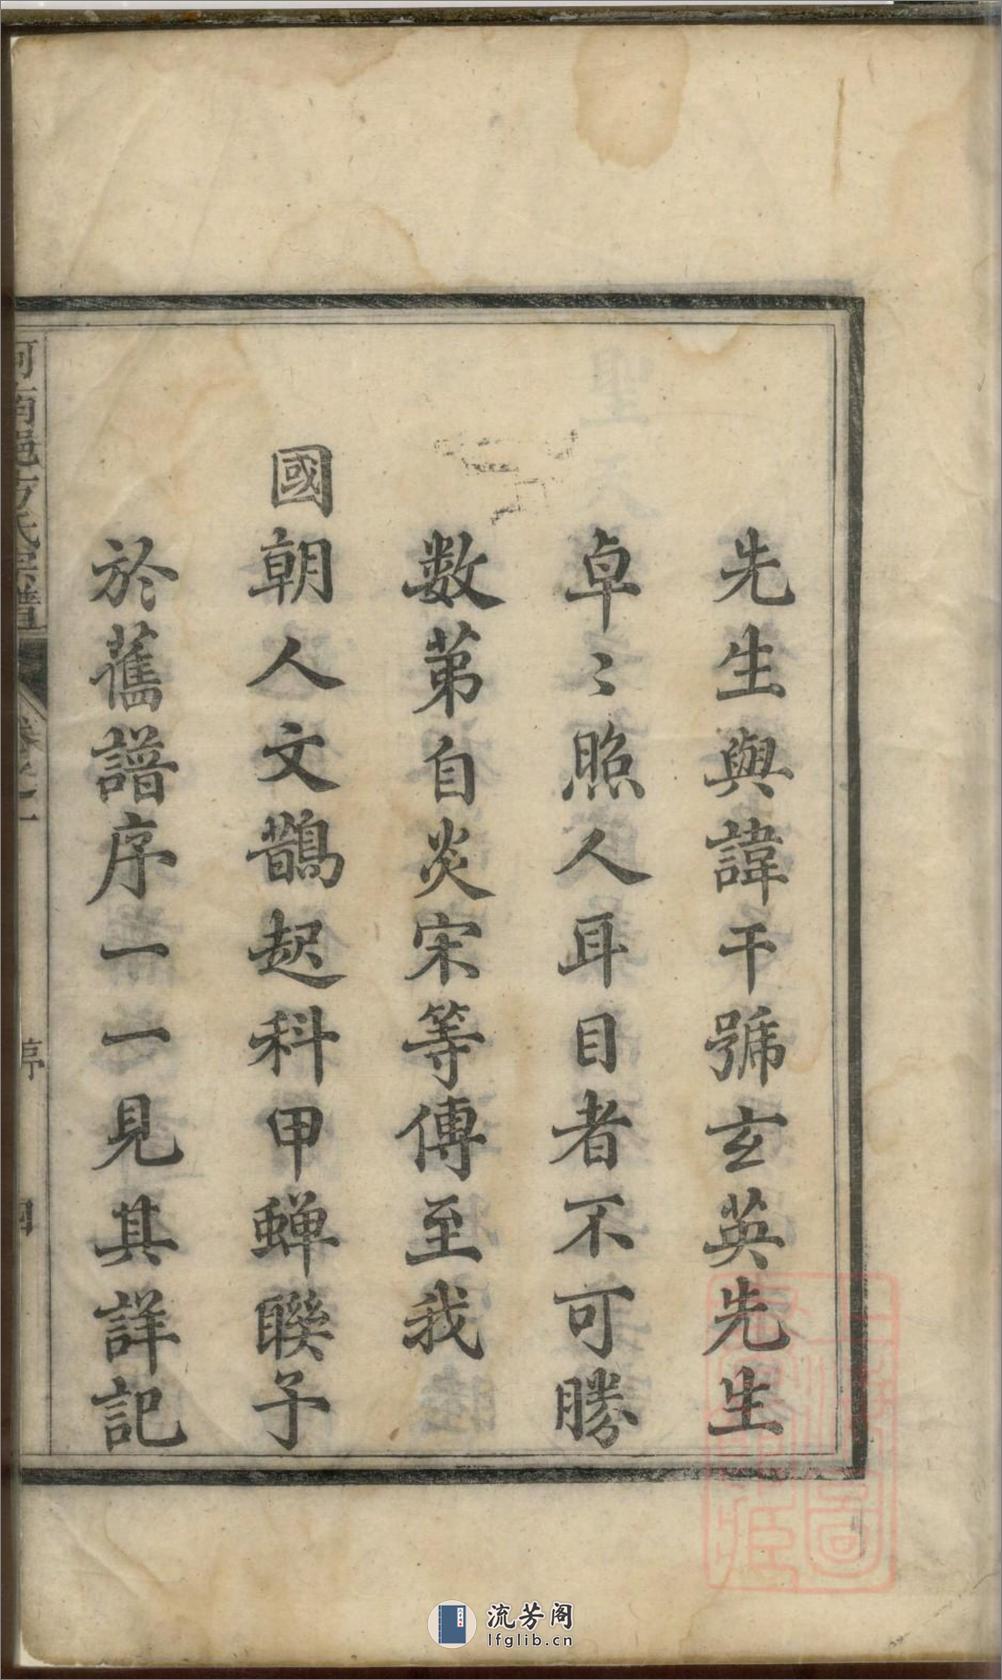 先生與諱干號玄英先生
卓〻照人耳目者不可勝
數苐自炎宋等傳至我
國朝人文鵲起科甲蟬聯予
於舊譜序一一見其詳記
流芳阁
lfglib.cn